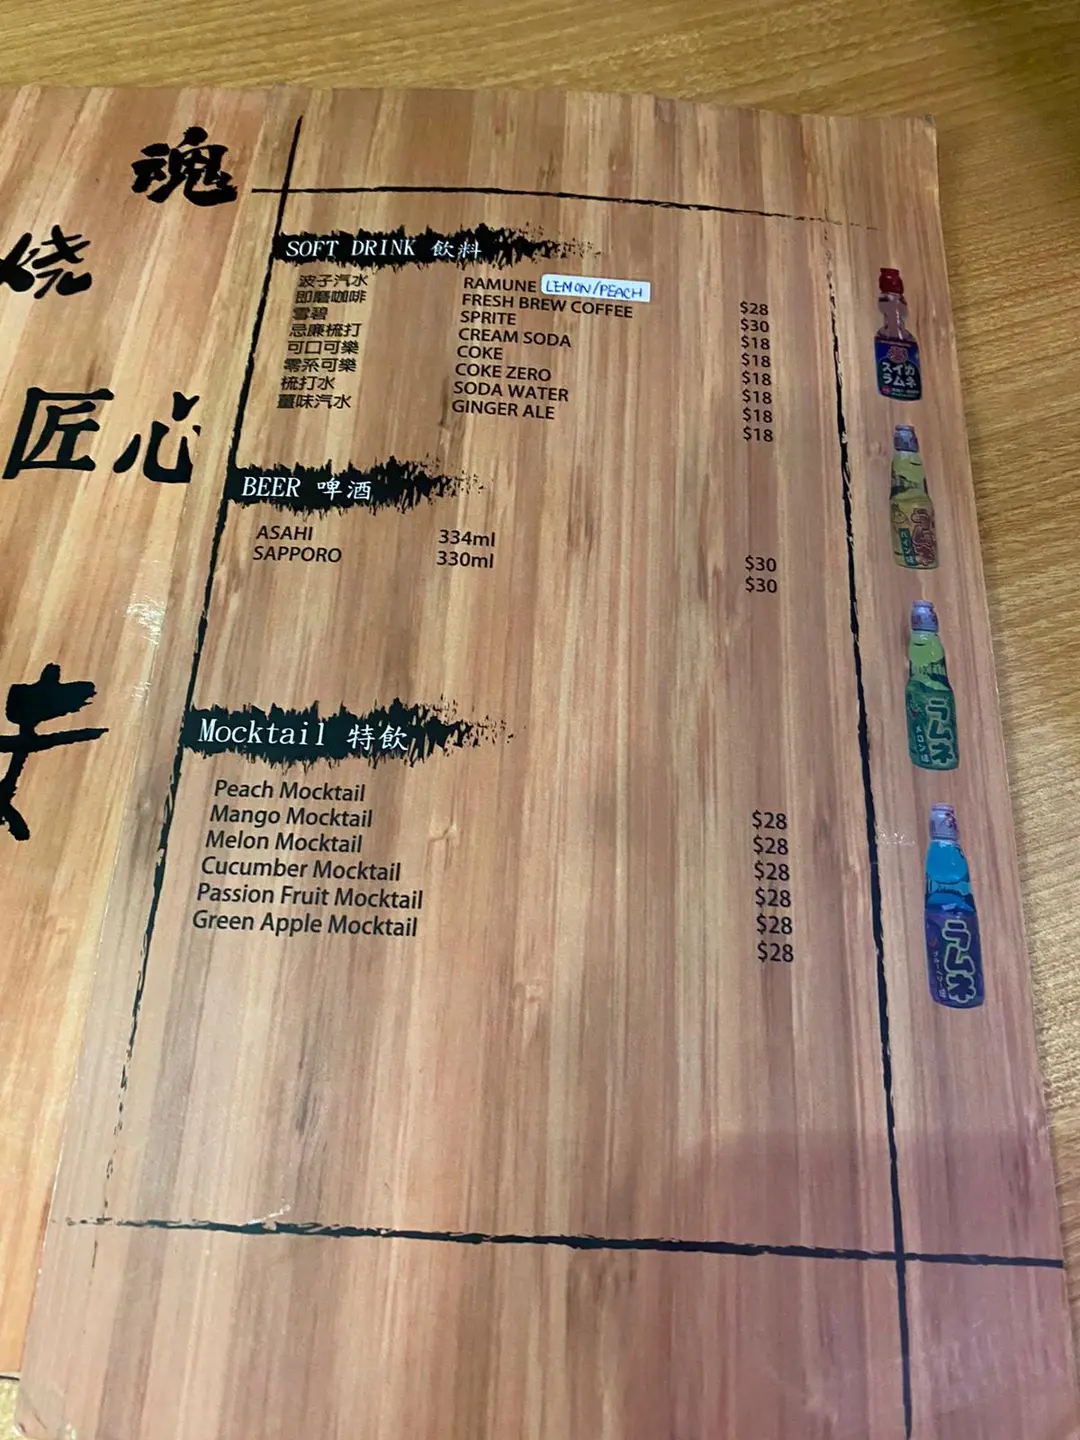 魂
烧
匠心
SOFT DRINK 飲料
波子汽水 RAMUNE LEMON/PEACH $28
即磨咖啡 FRESH BREW COFFEE $30
雪碧 SPRITE $18
忌廉梳打 CREAM SODA $18
可口可樂 COKE $18
零系可樂 COKE ZERO $18
梳打水 SODA WATER $18
薑味汽水 GINGER ALE $18
BEER 啤酒
ASAHI 334ml $30
SAPPORO 330ml $30
Mocktail 特飲
Peach Mocktail $28
Mango Mocktail $28
Melon Mocktail $28
Cucumber Mocktail $28
Passion Fruit Mocktail $28
Green Apple Mocktail $28
スイカ
ラムネ
ラムネ
パイン味
ラムネ
メロン味
ラムネ